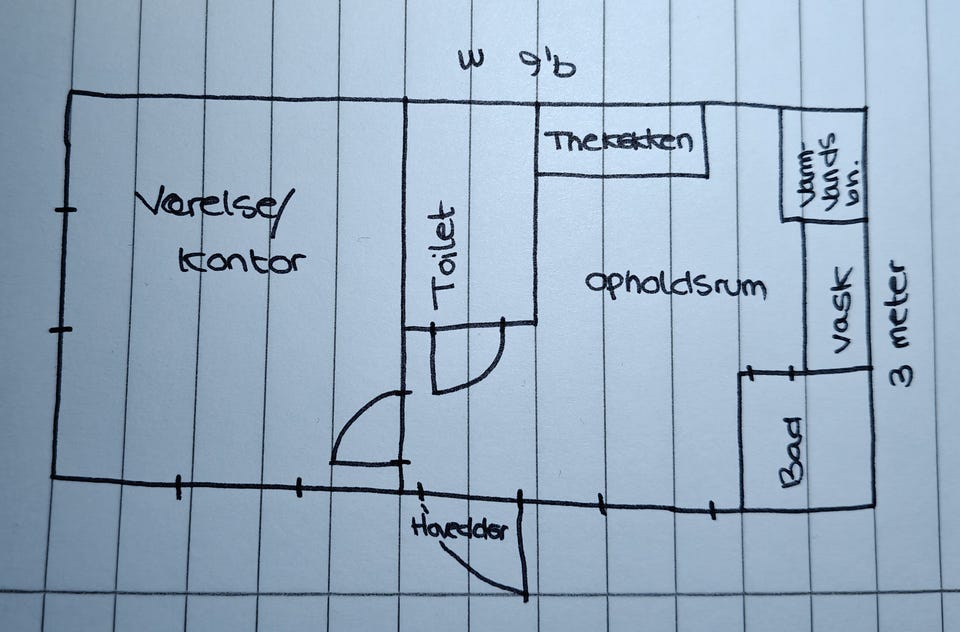 9,6 m
Thekøkken
Værelse/
Kontor
Toilet
Opholdsrum
Varm-
vands
bn.
Vask
3 meter
Bad
Hoveddør